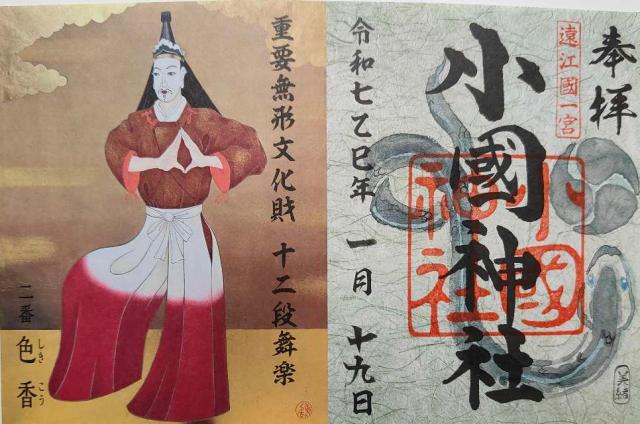 奉拝
遠江國一宮
小國神社
小國神社
令和七乙巳年 一月 十九日
美緒
重要無形文化財 十二段舞楽
二番 色香
しき こう